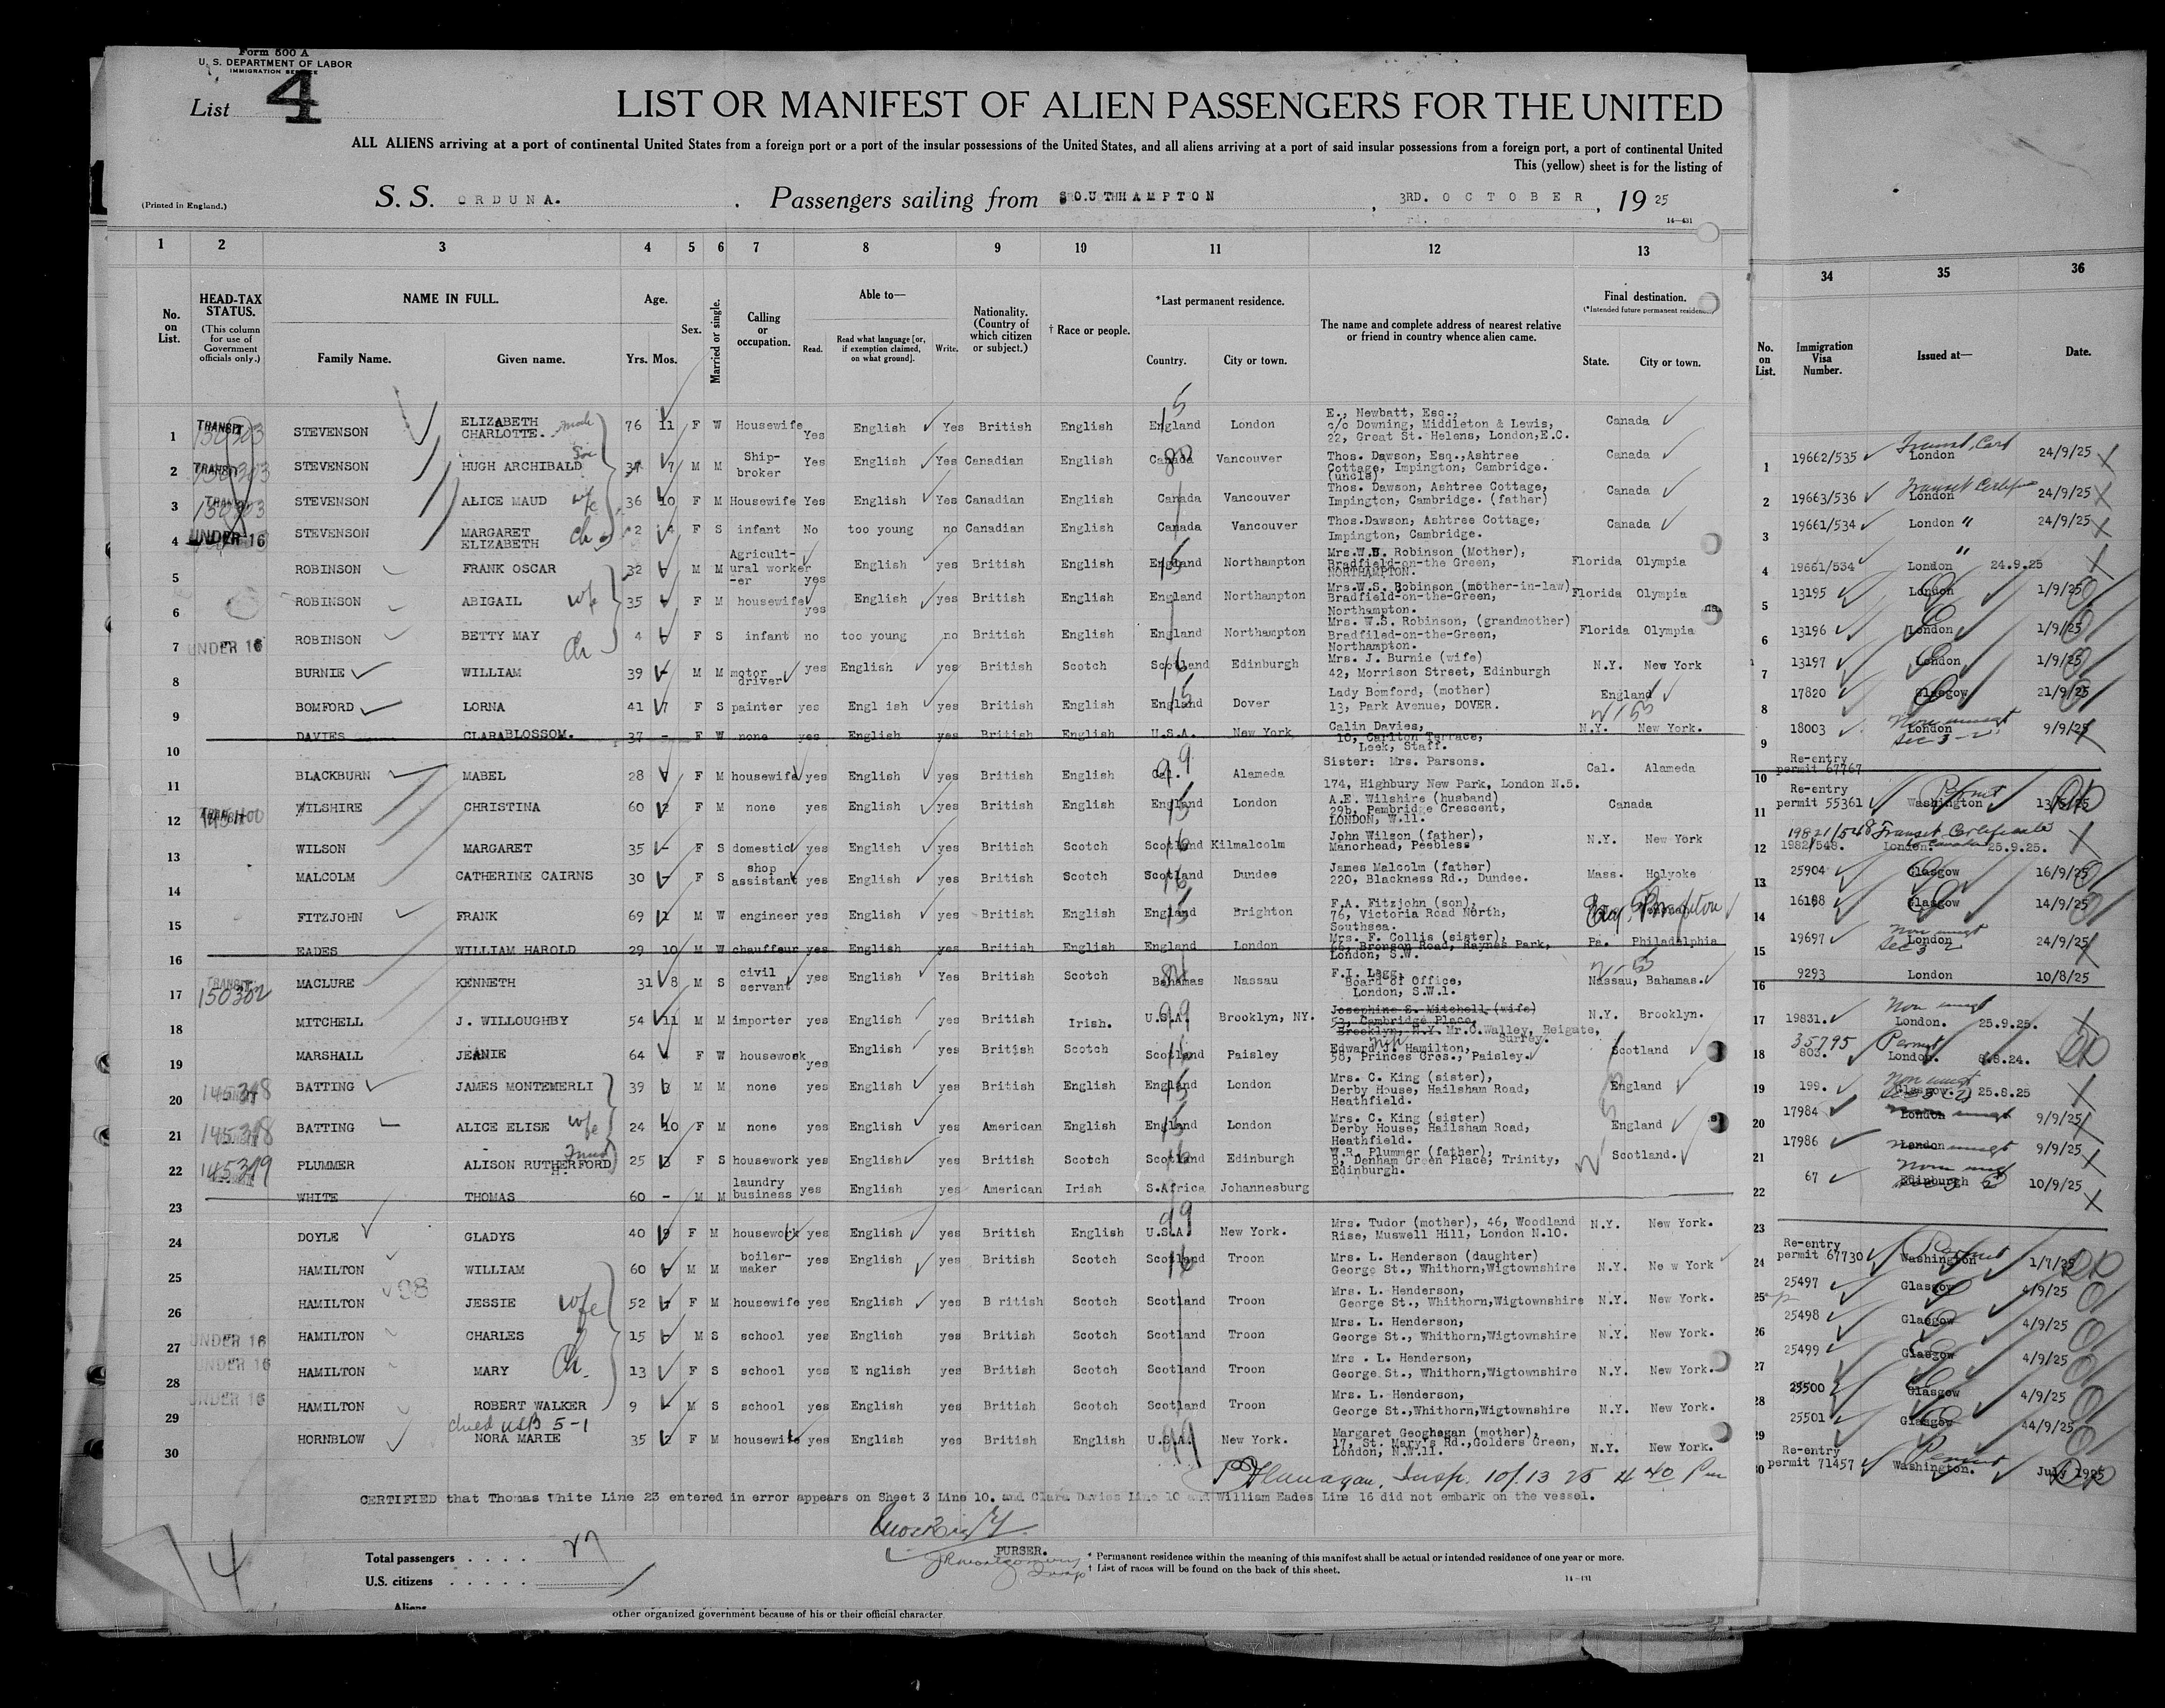 Form 500 A
U. S. DEPARTMENT OF LABOR
IMMIGRATION SERVICE
List 4
LIST OR MANIFEST OF ALIEN PASSENGERS FOR THE UNITED
ALL ALIENS arriving at a port of continental United States from a foreign port or a port of the insular possessions of the United States, and all aliens arriving at a port of said insular possessions from a foreign port, a port of continental United
This (yellow) sheet is for the listing of
(Printed in England.)
S. S. ORDUNA. . Passengers sailing from SOUTHAMPTON , 3RD. OCTOBER , 19 25
14—431
1 2 3 4 5 6 7 8 9 10 11 12 13
34 35 36
No. on List.
HEAD-TAX STATUS.
(This column for use of Government officials only.)
NAME IN FULL.
Family Name. Given name.
Age.
Yrs. Mos.
Sex.
Married or single.
Calling or occupation.
Able to—
Read. Read what language [or, if exemption claimed, on what ground]. Write.
Nationality. (Country of which citizen or subject.)
† Race or people.
*Last permanent residence.
Country. City or town.
The name and complete address of nearest relative or friend in country whence alien came.
Final destination.
(*Intended future permanent residence.)
State. City or town.
No. on List.
Immigration Visa Number.
Issued at—
Date.
1 TRANSIT STEVENSON ELIZABETH CHARLOTTE. 76 11 F W Housewife Yes English Yes British English England London E., Newbatt, Esq., c/o Downing, Middleton & Lewis, 22, Great St. Helens, London,E.C. Canada
2 TRANSIT STEVENSON HUGH ARCHIBALD 37 7 M M Ship-broker Yes English Yes Canadian English Canada Vancouver Thos. Dawson, Esq.,Ashtree Cottage, Impington, Cambridge. (uncle) Canada
3 TRANSIT STEVENSON ALICE MAUD wfe 36 10 F M Housewife Yes English Yes Canadian English Canada Vancouver Thos. Dawson, Ashtree Cottage, Impington, Cambridge. (father) Canada
4 UNDER 16 STEVENSON MARGARET ELIZABETH ch 2 4 F S infant No too young no Canadian English Canada Vancouver Thos.Dawson, Ashtree Cottage, Impington, Cambridge. Canada
5 ROBINSON FRANK OSCAR 32 - M M Agricult-ural worker -er yes English yes British English England Northampton Mrs.W.S. Robinson (Mother), Bradfield-on-the Green, NORTHAMPTON. Florida Olympia
6 ROBINSON ABIGAIL wfe 35 F M housewife yes English yes British English England Northampton Mrs.W.S. Robinson (mother-in-law) Bradfield-on-the-Green, Northampton. Florida Olympia
7 UNDER 16 ROBINSON BETTY MAY ch 4 F S infant no too young no British English England Northampton Mrs. W.S. Robinson, (grandmother) Bradfiled-on-the-Green, Northampton. Florida Olympia
8 BURNIE WILLIAM 39 - M M motor driver yes English yes British Scotch Scotland Edinburgh Mrs. J. Burnie (wife) 42, Morrison Street, Edinburgh N.Y. New York
9 BOMFORD LORNA 41 7 F S painter yes Engl ish yes British English England Dover Lady Bomford, (mother) 13, Park Avenue, DOVER. England
10 DAVIES CLARABLOSSOM. 37 - F W none yes English yes British English U.S.A. New York Calin Davies, 10, Carlton Terrace, Leek, Staff. N.Y. New York.
11 BLACKBURN MABEL 28 F M housewife yes English yes British English Cal. Alameda Sister: Mrs. Parsons. 174, Highbury New Park, London N.5. Cal. Alameda
12 WILSHIRE CHRISTINA 60 2 F M none yes English yes British English England London A.E. Wilshire (husband) 29b, Pembridge Crescent, LONDON, W.11. Canada
13 WILSON MARGARET 35 - F S domestic yes English yes British Scotch Scotland Kilmalcolm John Wilson (father), Manorhead, Peebless N.Y. New York
14 MALCOLM CATHERINE CAIRNS 30 - F S shop assistant yes English yes British Scotch Scotland Dundee James Malcolm (father) 220, Blackness Rd., Dundee. Mass. Holyoke
15 FITZJOHN FRANK 69 1 M W engineer yes English yes British English England Brighton F.A. Fitzjohn (son), 76, Victoria Road North, Southsea.
16 EADES WILLIAM HAROLD 29 10 M W chauffeur yes English yes British English England London Mrs. F. Collis (sister), 66, Bronson Road, Raynes Park, London, S.W. Pa. Philadelphia
17 TRANSIT 150302 MACLURE KENNETH 31 8 M S civil servant yes English Yes British Scotch Bahamas Nassau F.I. Legg, Board of Office, London, S.W.1. Nassau, Bahamas.
18 MITCHELL J. WILLOUGHBY 54 11 M M importer yes English yes British Irish. U.S.A. Brooklyn, NY. Josephine S. Mitchell (wife) 53, Cambridge Place, Brooklyn, N.Y. Mr.C.Walley, Reigate, Surrey. N.Y. Brooklyn.
19 MARSHALL JEANIE 64 F W housework yes English yes British Scotch Scotland Paisley Edward J. Hamilton, 58, Princes Cres., Paisley. Scotland
20 BATTING JAMES MONTEMERLI 39 3 M M none yes English yes British English England London Mrs. C. King (sister), Derby House, Hailsham Road, Heathfield. England
21 BATTING ALICE ELISE wfe 24 10 F M none yes English yes American English England London Mrs. C. King (sister) Derby House, Hailsham Road, Heathfield. England
22 PLUMMER ALISON RUTHERFORD H. 25 3 F S housework yes English yes British Scotch Scotland Edinburgh W.R. Plummer (father), 8, Denham Green Place, Trinity, Edinburgh. Scotland.
23 WHITE THOMAS 60 - M M laundry business yes English yes American Irish S.Africa Johannesburg
24 DOYLE GLADYS 40 9 F M housework yes English yes British English U.S.A. New York. Mrs. Tudor (mother), 46, Woodland Rise, Muswell Hill, London N.10. N.Y. New York.
25 HAMILTON WILLIAM 60 M M boiler-maker yes English yes British Scotch Scotland Troon Mrs. L. Henderson (daughter) George St., Whithorn,Wigtownshire N.Y. Ne w York
26 HAMILTON JESSIE wfe 52 F M housewife yes English yes B ritish Scotch Scotland Troon Mrs. L. Henderson, George St., Whithorn,Wigtownshire N.Y. New York.
27 UNDER 16 HAMILTON CHARLES 15 M S school yes English yes British Scotch Scotland Troon Mrs. L. Henderson, George St., Whithorn,Wigtownshire N.Y. New York.
28 UNDER 16 HAMILTON MARY ch. 13 F S school yes E nglish yes British Scotch Scotland Troon Mrs . L. Henderson, George St., Whithorn,Wigtownshire N.Y. New York.
29 UNDER 16 HAMILTON ROBERT WALKER 9 M S school yes English yes British Scotch Scotland Troon Mrs. L. Henderson, George St.,Whithorn,Wigtownshire N.Y. New York.
30 HORNBLOW NORA MARIE 35 2 F M housewife yes English yes British English U.S.A. New York. Margaret Geoghegan (mother), 17, St. Mary's Rd.,Golders Green, London, N.W.11. N.Y. New York.
1 19662/535 London 24/9/25
2 19663/536 London 24/9/25
3 19661/534 London " 24/9/25
4 19661/534 London " 24.9.25
5 13195 London 1/9/25
6 13196 London 1/9/25
7 13197 London 1/9/25
8 17820 Glasgow 21/9/25
9 18003 London 9/9/25
10 Re-entry permit 67767
11 Re-entry permit 55361 Washington 13/5/25
12 19821/548 Transit Certificate 1982/548. London. 25.9.25.
13 25904 Glasgow 16/9/25
14 16188 Glasgow 14/9/25
15 19697 London 24/9/25
16 9293 London 10/8/25
17 19831. London. 25.9.25.
18 35795 Permit 803. London. 8.8.24.
19 199. Glasgow. 25.8.25
20 17984 London 9/9/25
21 17986 London 9/9/25
22 67 Edinburgh 10/9/25
23
24 Re-entry permit 67730 Washington 1/7/25
25 25497 Glasgow 4/9/25
26 25498 Glasgow 4/9/25
27 25499 Glasgow 4/9/25
28 25500 Glasgow 4/9/25
29 25501 Glasgow 44/9/25
30 Re-entry permit 71457 Washington. July 1925
P Flanagan, Insp. 10/13 25 4 40 Pm
CERTIFIED that Thomas White Line 23 entered in error appears on Sheet 3 Line 10. and Clara Davies Line 10 and William Eades Line 16 did not embark on the vessel.
PURSER.
JR Montgomery
Total passengers . . . . 27
U.S. citizens . . . . .
Aliens
* Permanent residence within the meaning of this manifest shall be actual or intended residence of one year or more.
† List of races will be found on the back of this sheet.
14—431
other organized government because of his or their official character